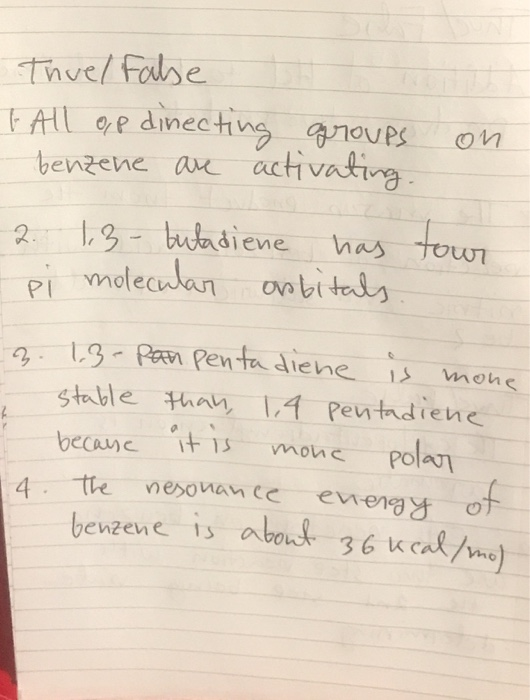 True/False
1. All o,p directing groups on
benzene are activating.
2. 1,3-butadiene has four
pi molecular orbitals.
3. 1.3- Pan pentadiene is more
stable than, 1,4 pentadiene
because it is more polar
4. The resonance energy of
benzene is about 36 kcal/mol